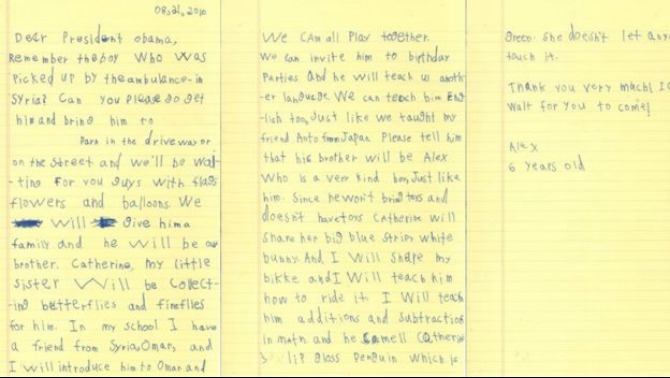 08.21.2016
Dear President obama,
Remember the boy who was
picked up by the ambulance in
Syria? Can you please go get
him and bring him to
Park in the driveway or
on the street and we'll be wai-
-ting for you guys with flags
flowers and balloons. We
will give him a
family and he will be our
brother. Catherine, my little
sister will be collect-
-ing butterflies and fireflies
for him. In my school I have
a friend from Syria, Omar, and
I will introduce him to Omar and
We can all play together.
We can invite him to birthday
parties and he will teach us anoth-
-er language. We can teach him Eng-
lish too, Just like we taught my
friend Aoto from Japan. Please tell him
that his brother will be Alex
who is a very kind boy, Just like
him. Since he won't bring toys and
doesn't have toys Catherine will
share her big blue stripy white
bunny. And I will share my
bikke and I will teach him
how to ride it. I will teach
him additions and subtractions
in math and he smell Catherine
's gloss penguin which is
green. She doesn't let any
touch it.
Thank you very much! I c
wait for you to come!
Alex
6 years old